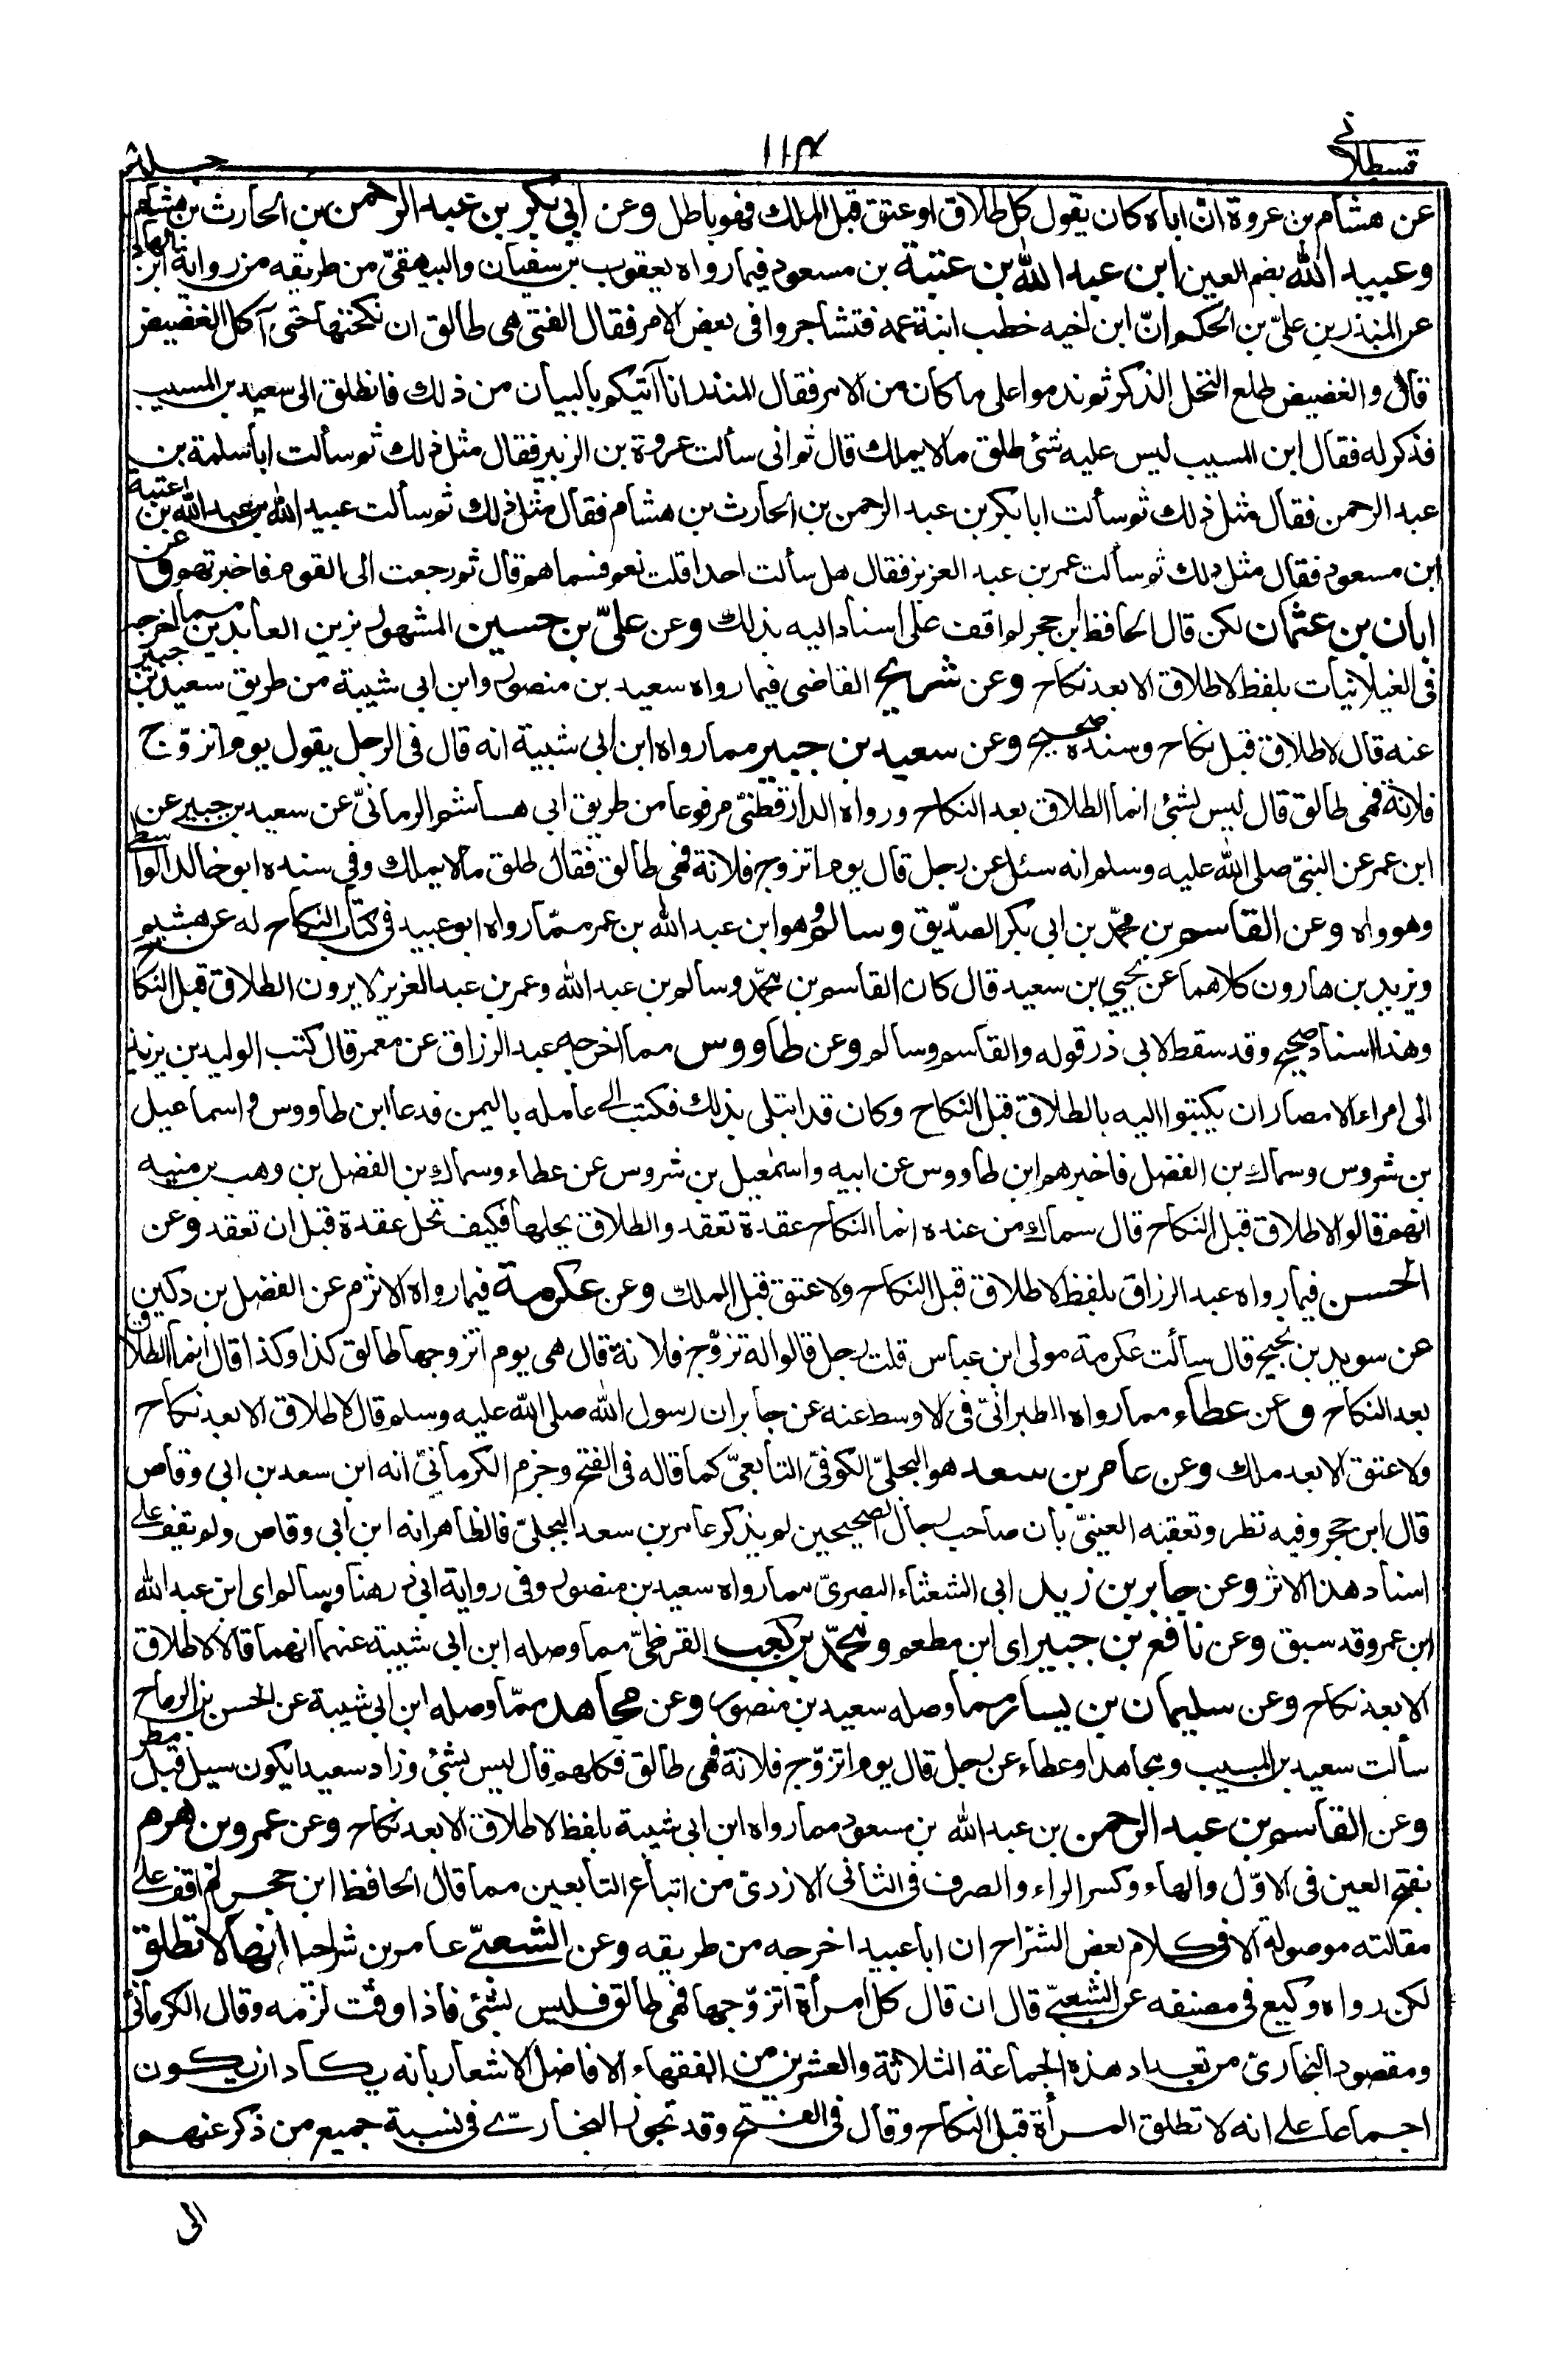 قسطلاني
١١٣
عن هشام بن عروة انّ اباه كان يقول كل طلاق او عتق قبل الملك فهو باطل وعن ابي بكر بن عبد الرحمن بن الحارث بن هشام
وعبيد الله بضم العين ابن عبد الله بن عتبة بن مسعود فيما رواه يعقوب بن سفيان والبيهقيّ من طريقه من رواية ابن الهاد
عن المنذر بن عليّ بن الحكم انّ ابن اخيه خطب ابنة عمه فتشاجروا في بعض الامر فقال الفتى هي طالق ان نكحتها حتى آكل الغضيض
قال والغضيض طلع النخل الذكر ثم ندموا على ما كان من الامر فقال المنذر انا آتيكم بالبيان من ذلك فانطلق الى سعيد بن المسيب
فذكر له فقال ابن المسيب ليس عليه شئ طلق ما لا يملك قال ثم انى سألت عروة بن الزبير فقال مثل ذلك ثم سألت ابا سلمة بن
عبد الرحمن فقال مثل ذلك ثم سألت ابا بكر بن عبد الرحمن بن الحارث بن هشام فقال مثل ذلك ثم سألت عبيد الله بن عبد الله بن عتبة
ابن مسعود فقال مثل ذلك ثم سألت عمر بن عبد العزيز فقال هل سألت احدا قلت نعم فسماهم قال ثم رجعت الى القوم فاخبرتهم وعن
ابان بن عثمان لكن قال الحافظ ابن حجر لم اقف على اسناد اليه بذلك وعن عليّ بن حسين المشهور بزين العابدين مما اخرجه
في الغيلانيات بلفظ لا طلاق الا بعد نكاح وعن شريح القاضي فيما رواه سعيد بن منصور وابن ابي شيبة من طريق سعيد بن جبير
عنه قال لا طلاق قبل نكاح وسنده صحيح وعن سعيد بن جبير مما رواه ابن ابي شيبة انه قال في الرجل يقول يوم اتزوّج
فلانة فهي طالق قال ليس بشئ انما الطلاق بعد النكاح ورواه الدارقطنيّ مرفوعا من طريق ابي هاشم الرمانيّ عن سعيد بن جبير عن
ابن عمر عن النبيّ صلى الله عليه وسلم انه سئل عن رجل قال يوم اتزوج فلانة فهي طالق فقال طلق ما لا يملك وفي سنده ابو خالد الواسطي
وهو واه وعن القاسم بن محمّد بن ابي بكر الصدّيق وسالم وهو ابن عبد الله بن عمر ممّا رواه ابو عبيد في كتاب النكاح له عن هشيم
ويزيد بن هارون كلاهما عن يحيى بن سعيد قال كان القاسم بن محمّد وسالم بن عبد الله وعمر بن عبد العزيز لا يرون الطلاق قبل النكاح
وهذا اسناد صحيح وقد سقط لابي ذر قوله والقاسم وسالم وعن طاووس مما اخرجه عبد الرزاق عن معمر قال كتب الوليد بن يزيد
الى امراء الامصار ان يكتبوا اليه بالطلاق قبل النكاح وكان قد ابتلى بذلك فكتب الى عامله باليمن فدعا ابن طاووس واسماعيل
بن شروس وسماك بن الفضل فاخبرهم ابن طاووس عن ابيه واسمعيل بن شروس عن عطاء وسماك بن الفضل بن وهب بن منبه
انهم قالوا لا طلاق قبل النكاح قال سماك من عنده انما النكاح عقدة تعقد والطلاق يحلها فكيف تحل عقدة قبل ان تعقد وعن
الحسن فيما رواه عبد الرزاق بلفظ لا طلاق قبل النكاح ولا عتق قبل الملك وعن عكرمة فيما رواه الاثرم عن الفضل بن دكين
عن سويد بن نجيح قال سألت عكرمة مولى ابن عباس قلت رجل قالوا له تزوّج فلانة قال هي يوم اتزوجها طالق كذا وكذا قال انما الطلاق
بعد النكاح وعن عطاء مما رواه الطبرانيّ في الاوسط عنه عن جابر ان رسول الله صلى الله عليه وسلم قال لا طلاق الا بعد نكاح
ولا عتق الا بعد ملك وعن عامر بن سعد هو البجليّ الكوفيّ التابعيّ كما قاله في الفتح وجزم الكرمانيّ انه ابن سعد بن ابي وقاص
قال ابن حجر وفيه نظر وتعقبه العينيّ بان صاحب رجال الصحيحين لم يذكر عامر بن سعد البجليّ فالظاهر انه ابن ابي وقاص ولم يقف على
اسناد هذا الاثر وعن جابر بن زيد ابي الشعثاء البصريّ مما رواه سعيد بن منصور وفي رواية ابي ذر هنا وسالم اى ابن عبد الله
ابن عمر وقد سبق وعن نافع بن جبير اى ابن مطعم ومحمّد بن كعب القرظيّ مما وصله ابن ابي شيبة عنهما انهما قالا لا طلاق
الا بعد نكاح وعن سليمان بن يسار مما وصله سعيد بن منصور وعن مجاهد ممّا وصله ابن ابي شيبة عن الحسن بن الرماح
سألت سعيد بن المسيب ومجاهدا وعطاء عن رجل قال يوم اتزوّج فلانة فهي طالق فكلهم قال ليس بشئ وزاد سعيد ايكون سيل قبل مطر
وعن القاسم بن عبد الرحمن بن عبد الله بن مسعود مما رواه ابن ابي شيبة بلفظ لا طلاق الا بعد نكاح وعن عمرو بن هرم
بفتح العين في الاوّل والهاء وكسر الراء والصرف في الثانى الازديّ من اتباع التابعين مما قال الحافظ ابن حجر لم اقف على
مقالته موصولة الا في كلام بعض الشرّاح ان ابا عبيد اخرجه من طريقه وعن الشعبيّ عامر بن شراحيل انها لا تطلق
لكن رواه وكيع في مصنفه عن الشعبيّ قال ان قال كل امرأة اتزوّجها فهي طالق فليس بشئ فاذا وقّت لزمه وقال الكرمانيّ
ومقصود البخاريّ من تعداد هذه الجماعة الثلاثة والعشرين من الفقهاء الافاضل الاشعار بانه يكاد ان يكون
اجماعا على انه لا تطلق المرأة قبل النكاح وقال في الفتح وقد تجوز البخاريّ في نسبة جميع من ذكر عنهم
الى